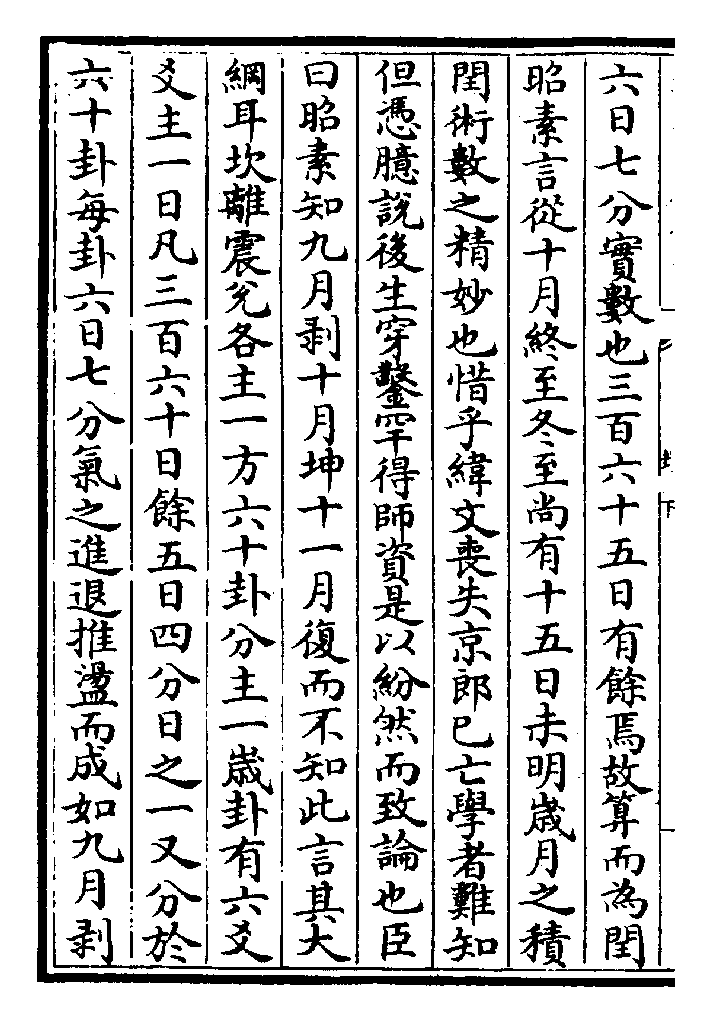 六日七分實數也三百六十五日有餘焉故算而為閏
昭素言從十月終至冬至尚有十五日未明歲月之積
閏術數之精妙也惜乎緯文喪失京郎已亡學者難知
但憑臆說後生穿鑿罕得師資是以紛然而致論也臣
曰昭素知九月剥十月坤十一月復而不知此言其大
綱耳坎離震兌各主一方六十卦分主一歲卦有六爻
爻主一日凡三百六十日餘五日四分日之一又分於
六十卦每卦六日七分氣之進退推盪而成如九月剥